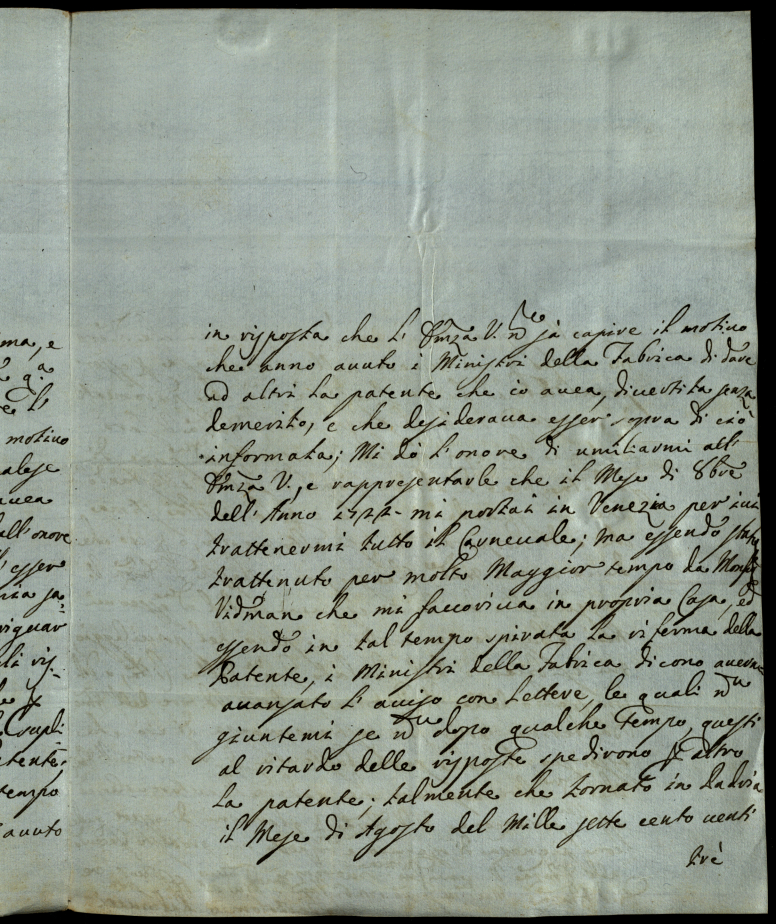 in risposta che L' Emza V. ne sà capire il motivo
che anno avuto i Ministri della Fabrica di dare
ad altri La patente che io avea, divertita senza
demerito, e che desiderava esser sopra di ciò
informata; Mi dò L'onore di umiliarmi all'
Emza V., e rappresentarle che il Mese di 8bre
dell'Anno 1722 mi portai in Venezia per ivi
trattenermi tutto il Carnevale; ma essendo
trattenuto per molto Maggior tempo da
Vidman che mi favoriva in propria Casa, ed
essendo in tal tempo spirata La riferma della
Patente, i Ministri della Fabrica dicono
avanzato L'aviso con Lettere, le quali non
giuntemi se non dopo qualche tempo, questi
al ritardo delle risposte spedirono per altro
La patente; talmente che tornato in
il Mese di Agosto del Mille sette cento venti
trè
ma, e
motivo
avea
all'onore
esser
tempo
avuto